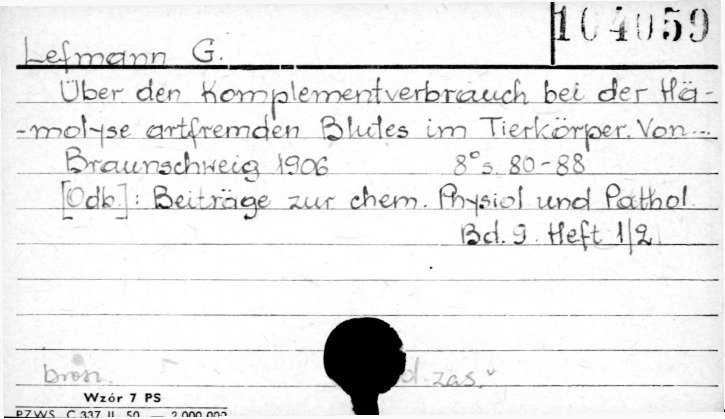 104059
Lefmann G.
Über den Komplementverbrauch bei der Hä-
-molyse artfremden Blutes im Tierkörper. Von...
Braunschweig 1906 8° s. 80-88
[Odb.]: Beiträge zur chem. Physiol und Pathol.
Bd. 9. Heft 1/2
brosz. d. zas."
Wzór 7 PS
PZWS C 337 II 50 — 2.000.000